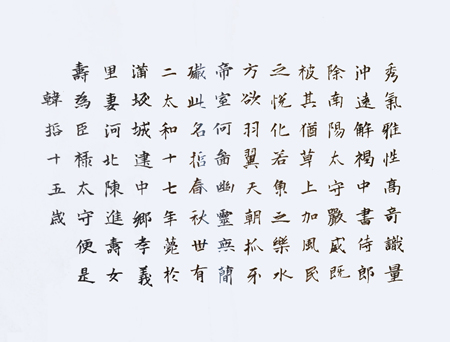 秀氣雅性高奇識量
沖遠解褐中書侍郎
除南陽太守嚴威既
被其猶草上加風民
之悅化若魚之樂水
方欲羽翼天朝抓牙
帝室何啚幽靈無簡
此名春秋世有
二太和十七年薨於
滿坂城建中鄉孝義
里妻河北陳進壽女
壽為臣祿太守便是
韓十五歲